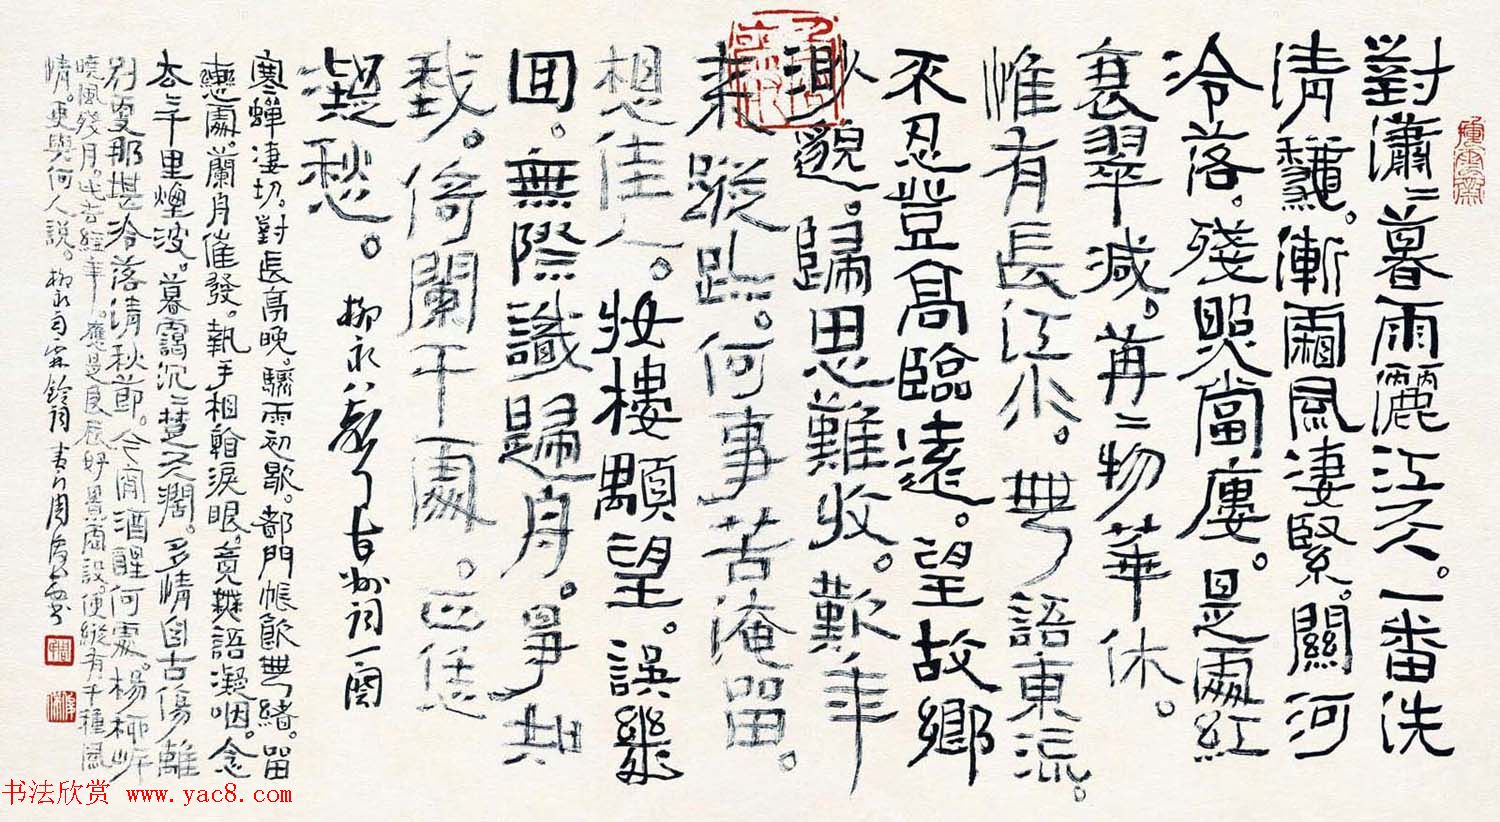 對瀟〻暮雨灑江天。一番洗
清龝。漸霜風淒緊。關河
冷落。殘照當廔。是處紅
衰翠減。苒〻物華休。
惟有長江水。無語東流。
不忍登高臨遠。望故鄉
渺邈。歸思難收。歎年
來蹤跡。何事苦淹留。
想佳人。妝樓顒望。誤幾
回。無際識歸舟。爭知
我。倚闌干處。正恁
凝愁。
柳永八聲甘州詞一闋
寒蟬淒切。對長亭晚。驟雨初歇。都門帳飲無緒。留
戀處。蘭舟催發。執手相看淚眼。竟無語凝咽。念
去〻千里煙波。暮靄沉〻楚天闊。多情自古傷離
別。更那堪冷落清秋節。今宵酒醒何處。楊柳岸
曉風殘月。此去經年。應是良辰好景虛設。便縱有千種風
情。更與何人說。柳永雨霖鈴詞
书法欣赏 www.yac8.com